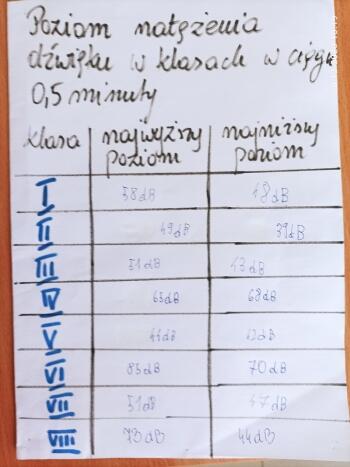 Poziom natężenia
dźwięku w klasach w ciągu
0,5 minuty
klasa najwyższy poziom najniższy poziom
I 58dB 48dB
II 49dB 39dB
III 51dB 43dB
IV 65dB 68dB
V 44dB
VI 85dB 70dB
VII 51dB 47dB
VIII 73dB 44dB